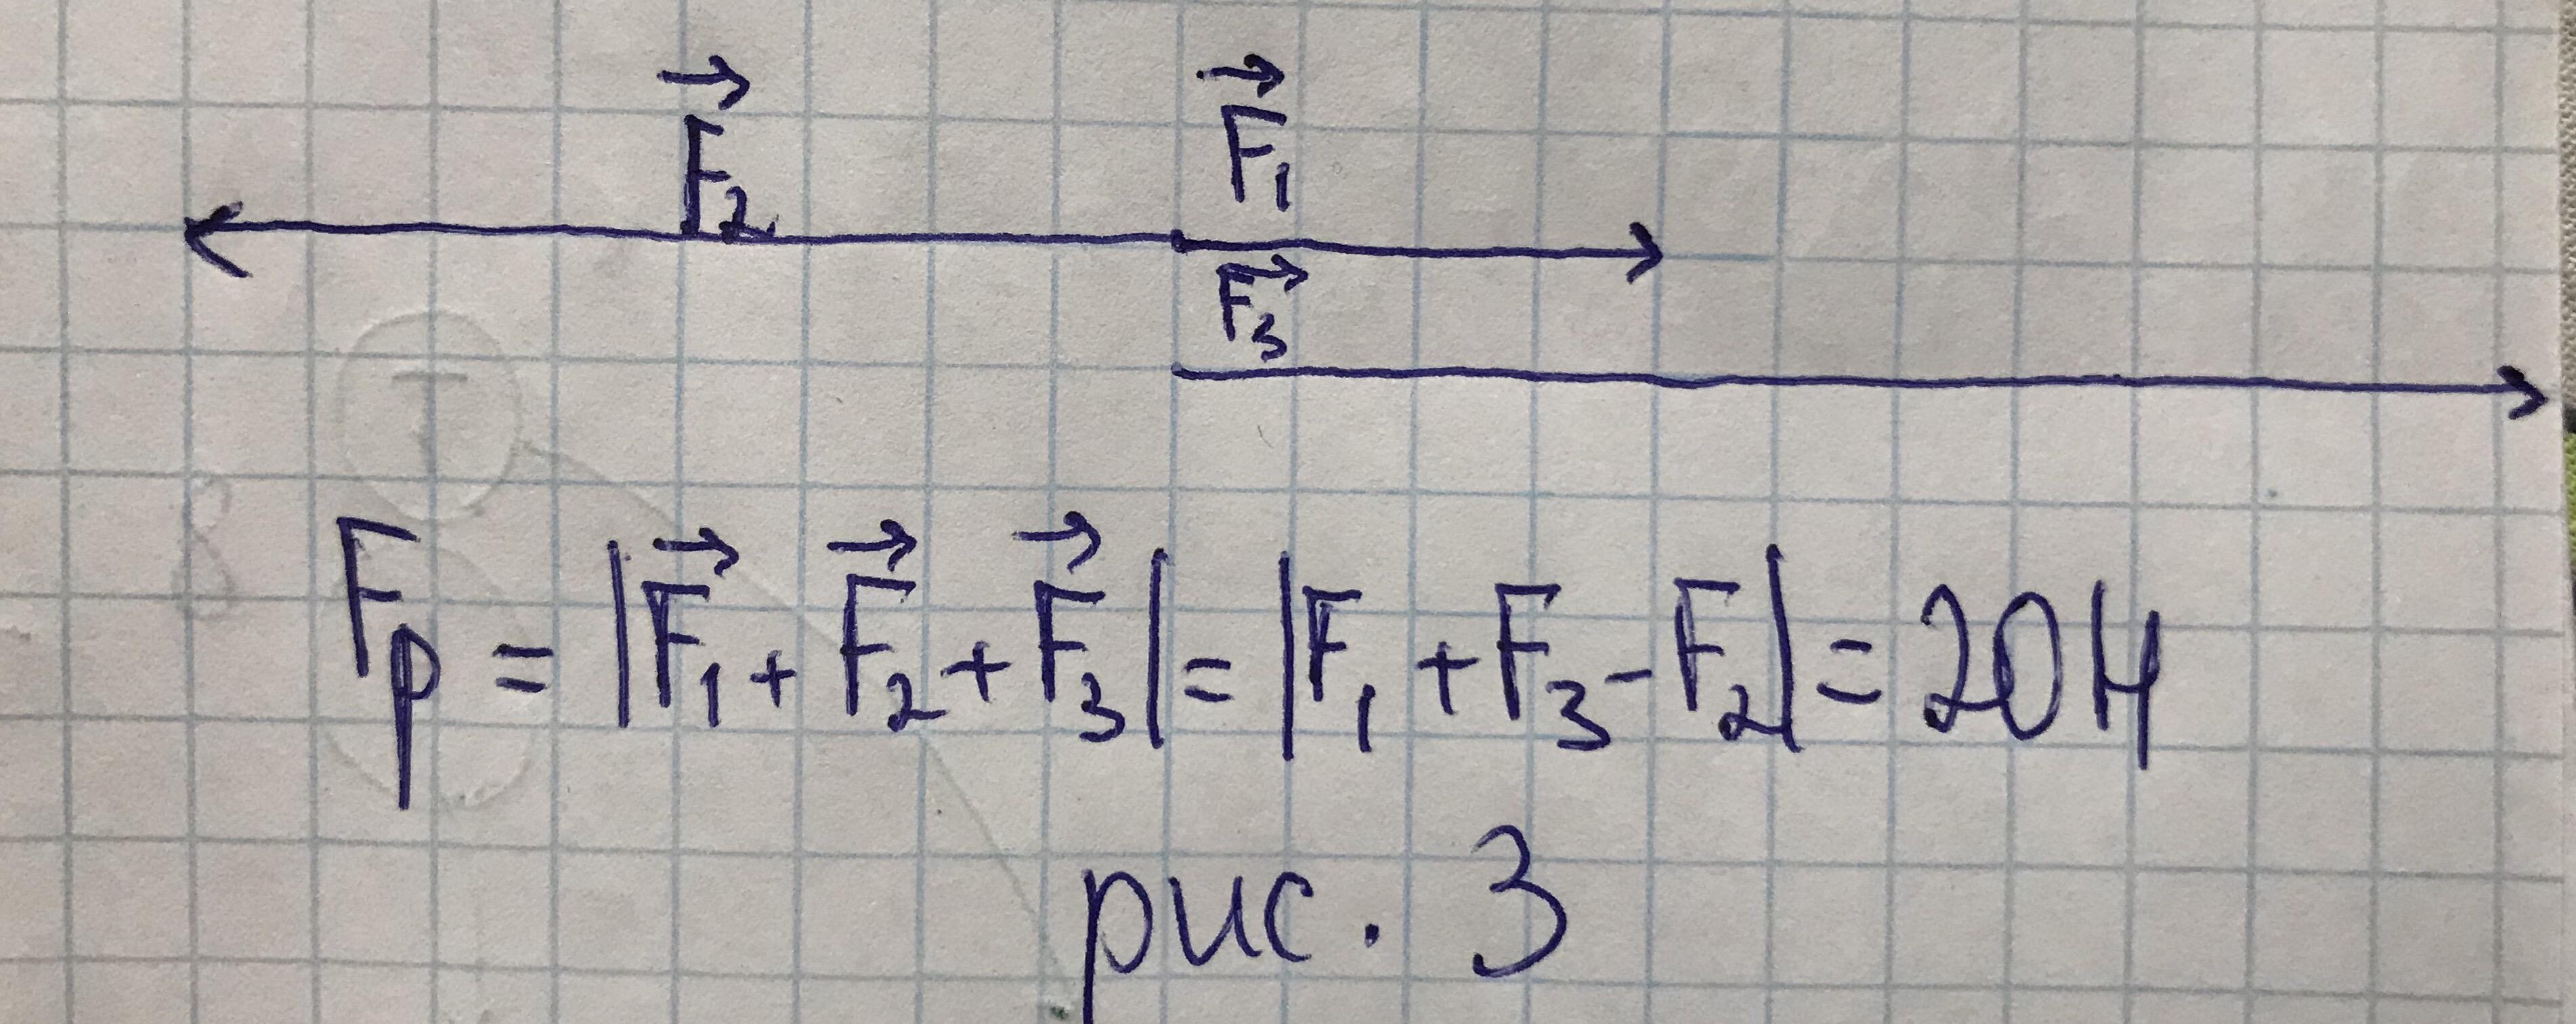 F⃗₂ F⃗₁
F⃗₃
Fр = |F⃗₁ + F⃗₂ + F⃗₃| = |F₁ + F₃ - F₂| = 20 Н
рис. 3